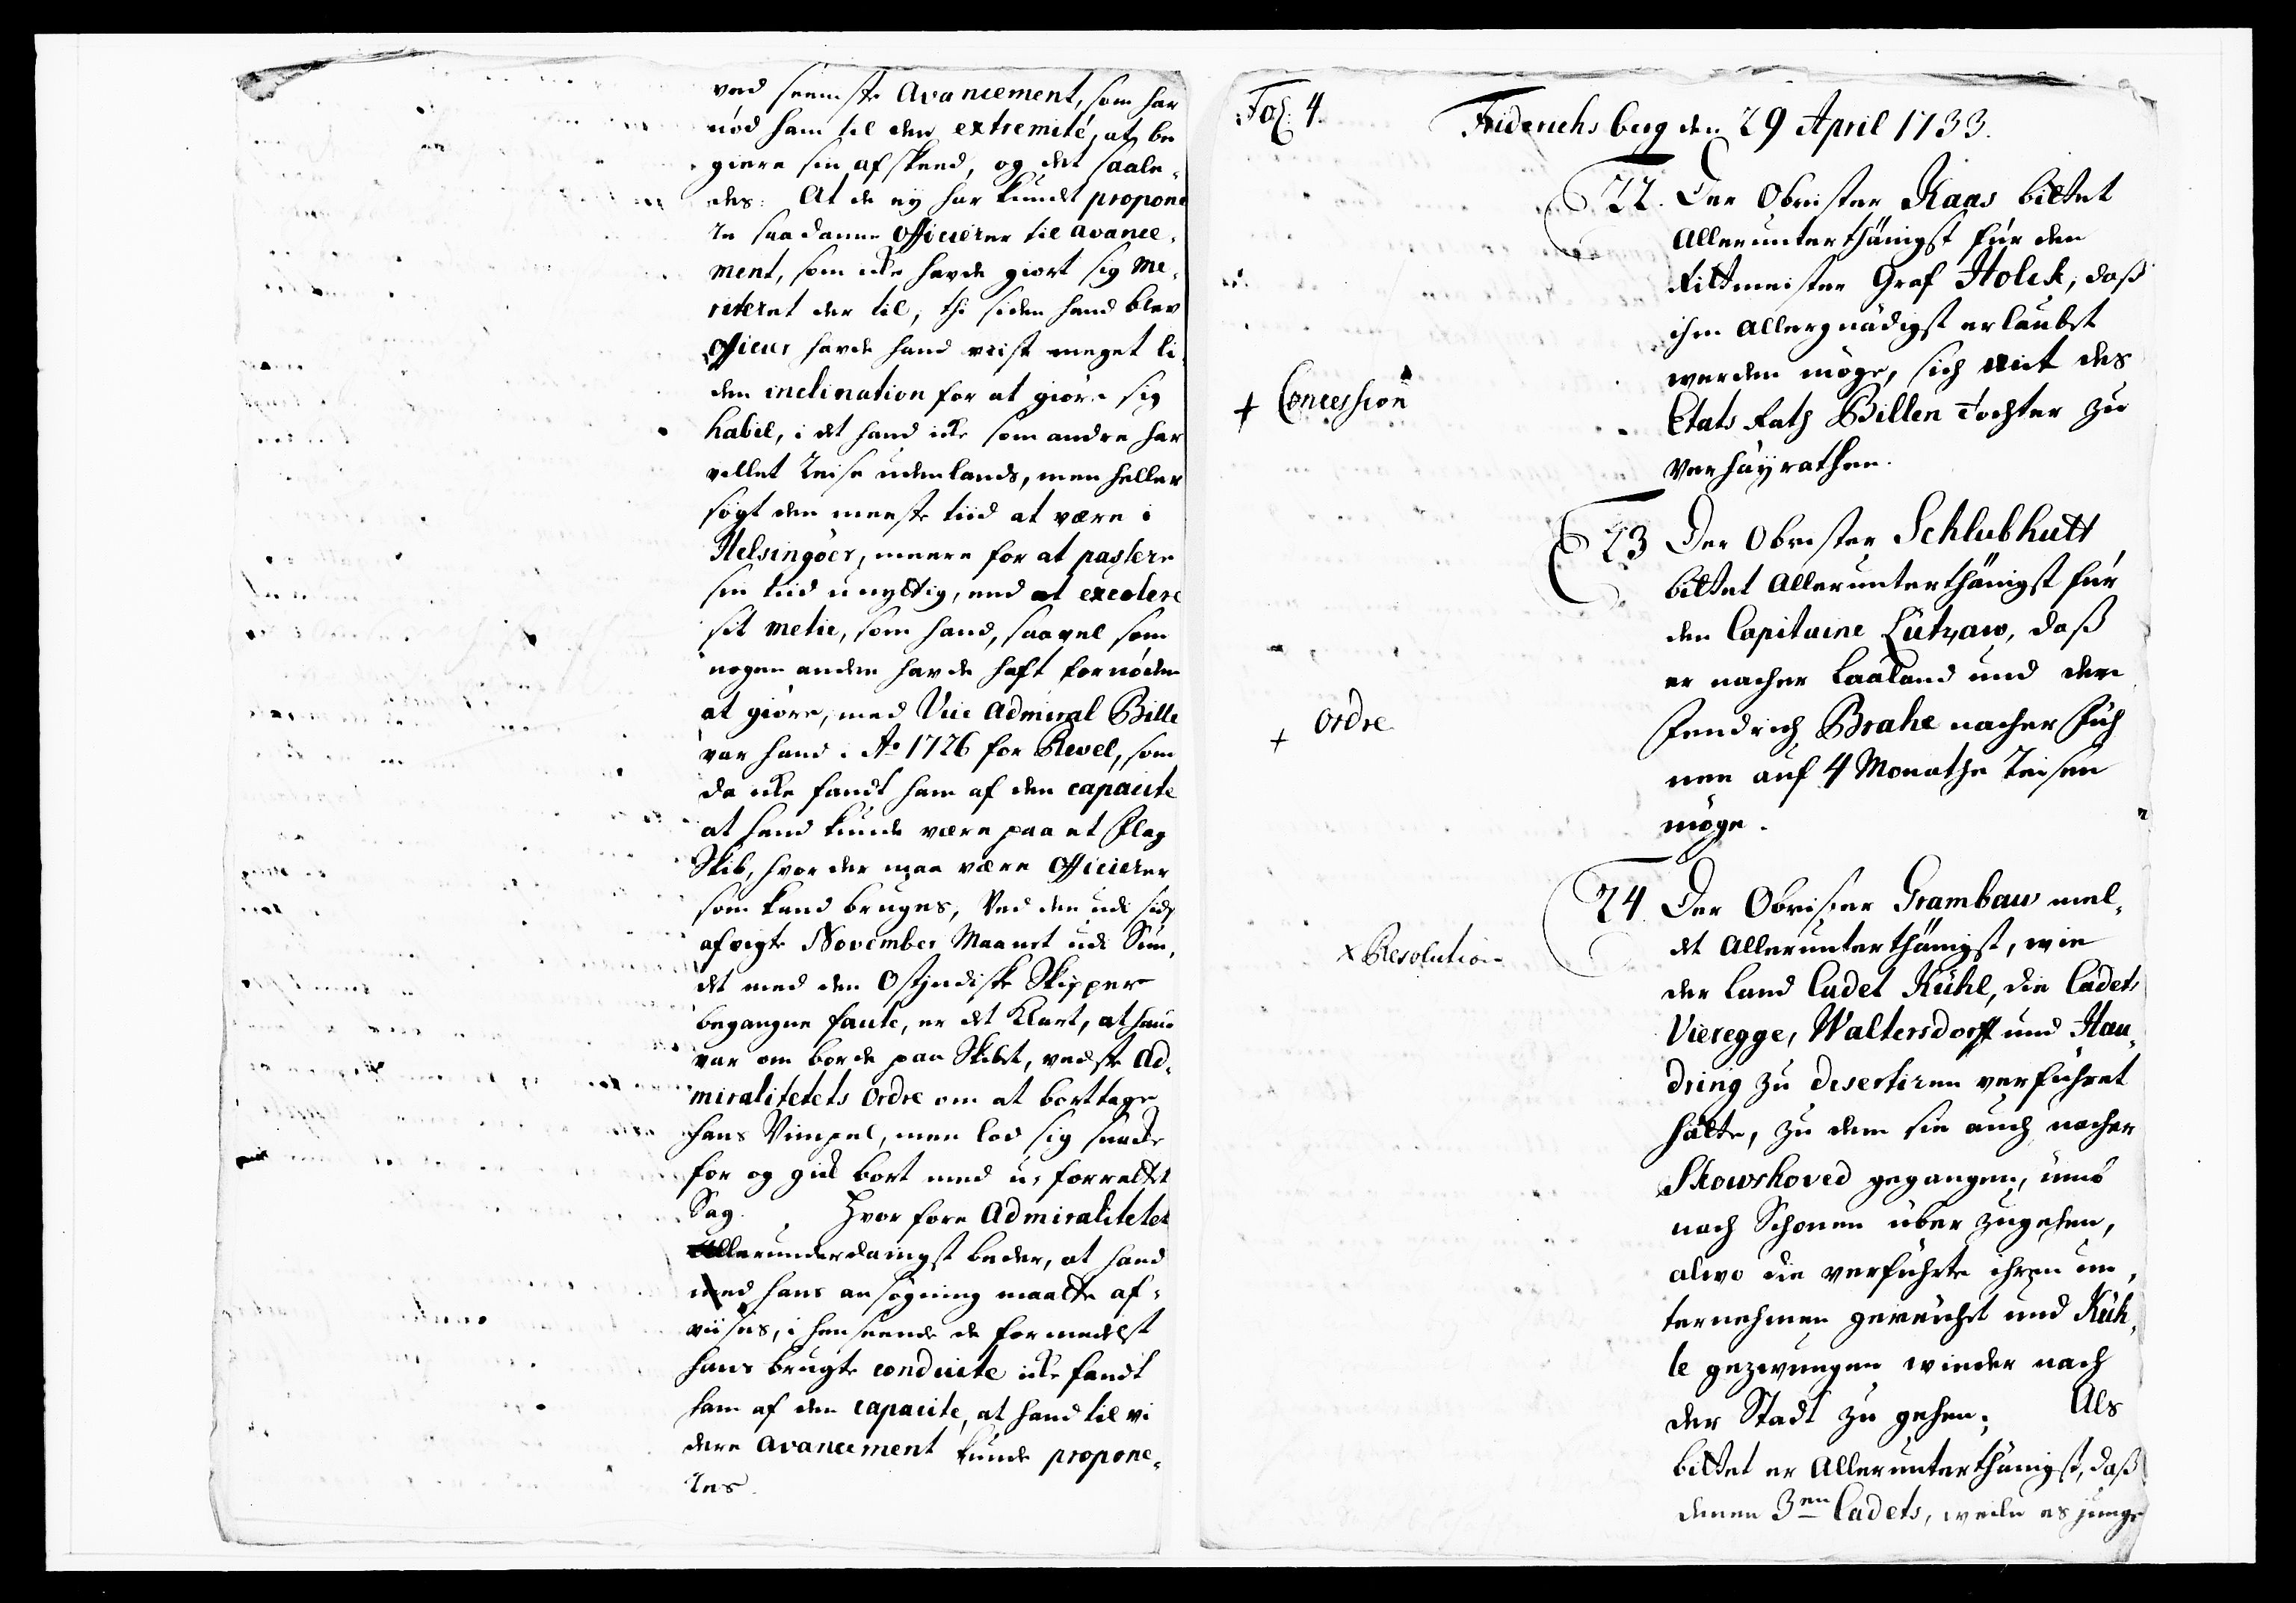 ved seeniste Avancement, som har
nød ham til den extremité, at be
giere sin afskeed, og det saale-
des: At de ey har kundt propone
re saadanne Officierer til avance-
ment, som icke havde giort sig me-
riteret der til, thi siden hand blev
Officier havde hand viist meget li-
den inclination for at giøre sig
habil, i det hand icke som andre har
villet reise udenlands, men heller
søgt den meeste tiid at være i
Helsingöer, meere for at passere
sin tiid unyttig, end at excolere
sit metie, som hand, saavel som
nogen anden havde haft fornøden
at giøre, med Vice Admiral Bille
var hand i Ao 1726 for Revel, som
da icke fandt ham af den capacite
at hand kunde være paa et Flag
Skib, hvor der maa være Officierer
som kand bruges, Ved den udi sidst
afvigte November Maanet udi Sun-
det med den Ostindiske Skipper
begangne faute, er det Klart, at hand
var om borde paa Skibet, viedste Ad-
miralitetets Ordre om at borttage
hans Vimpel, men lod sig snacke
for og gick bort med u-forrettet
Sag. Hvorfore Admiralitetet
Allerunderdanigst beder, at hand
med hans ansøgning maatte af-
viises, i henseende de formedelst
hans brugte conduite icke fandt
ham af den capacite, at hand til vi
dere avancement kunde propone-
res.
Fol: 4.
Friderichsberg den 29 April 1733.
22. Der Obrister Kaas bittet
Allerunterthänigst für den
Rittmeister Graf Holck, daß
ihm Allergnädigst erlaubet
werden möge, sich mit des
Etats Rath Billen Tochter zu
Verhäyrathen.
+ Concession
23 Der Obrister Schlubhutt
bittet Allerunterthänigst für
den Capitaine Lützaw, daß
er nacher Laaland und den
Fendrich Brahe nacher Füh
nen auf 4 Monathe reisen
möge.
+ Ordre
24 Der Obrister Grambaw mel-
det Allerunterthänigst, wie
der Land Cadet Kühl, die Cadets
Vieregge, Waltersdorff und Hau-
dring zu desertiren verführet
hätte, zu dem sie auch nacher
Skowshoved gegangen, umb
nach Schonen über zugehen,
alwo die verführte ihren un-
ternehmen gereühet und Küh-
le gezwungen wieder nach
der Stadt zu gehen; Als
bittet er Allerunterthänigst, daß
denen 3en Cadets, weiln es junge
x Resolution